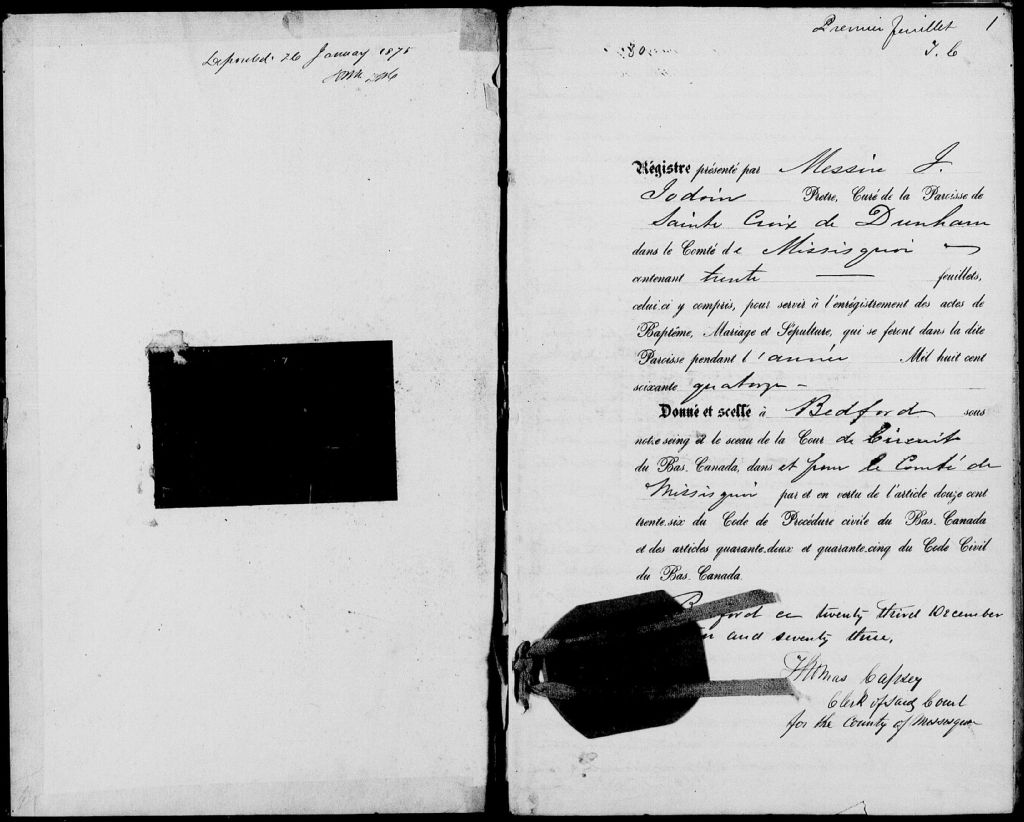 Deposited 26 January 1875
Premier feuillet 1
T. C
Régistre présenté par Messire J.
Jodoin Prêtre, Curé de la Paroisse de
Sainte Croix de Dunham
dans le Comté de Missisquoi
contenant trente feuillets,
celui-ci y compris, pour servir à l'enrégistrement des actes de
Baptême, Mariage et Sépulture, qui se feront dans la dite
Paroisse pendant l'année Mil huit cent
soixante quatorze -
Donné et scellé à Bedford sous
notre seing et le sceau de la Cour de Circuit
du Bas-Canada, dans et pour le Comté de
Missisquoi par et en vertu de l'article douze cent
trente-six du Code de Procédure civile du Bas-Canada
et des articles quarante-deux et quarante-cinq du Code Civil
du Bas-Canada.
ford ce twenty third December
and seventy three,
Thomas Capsey
Clerk of said Court
for the County of Missisquoi